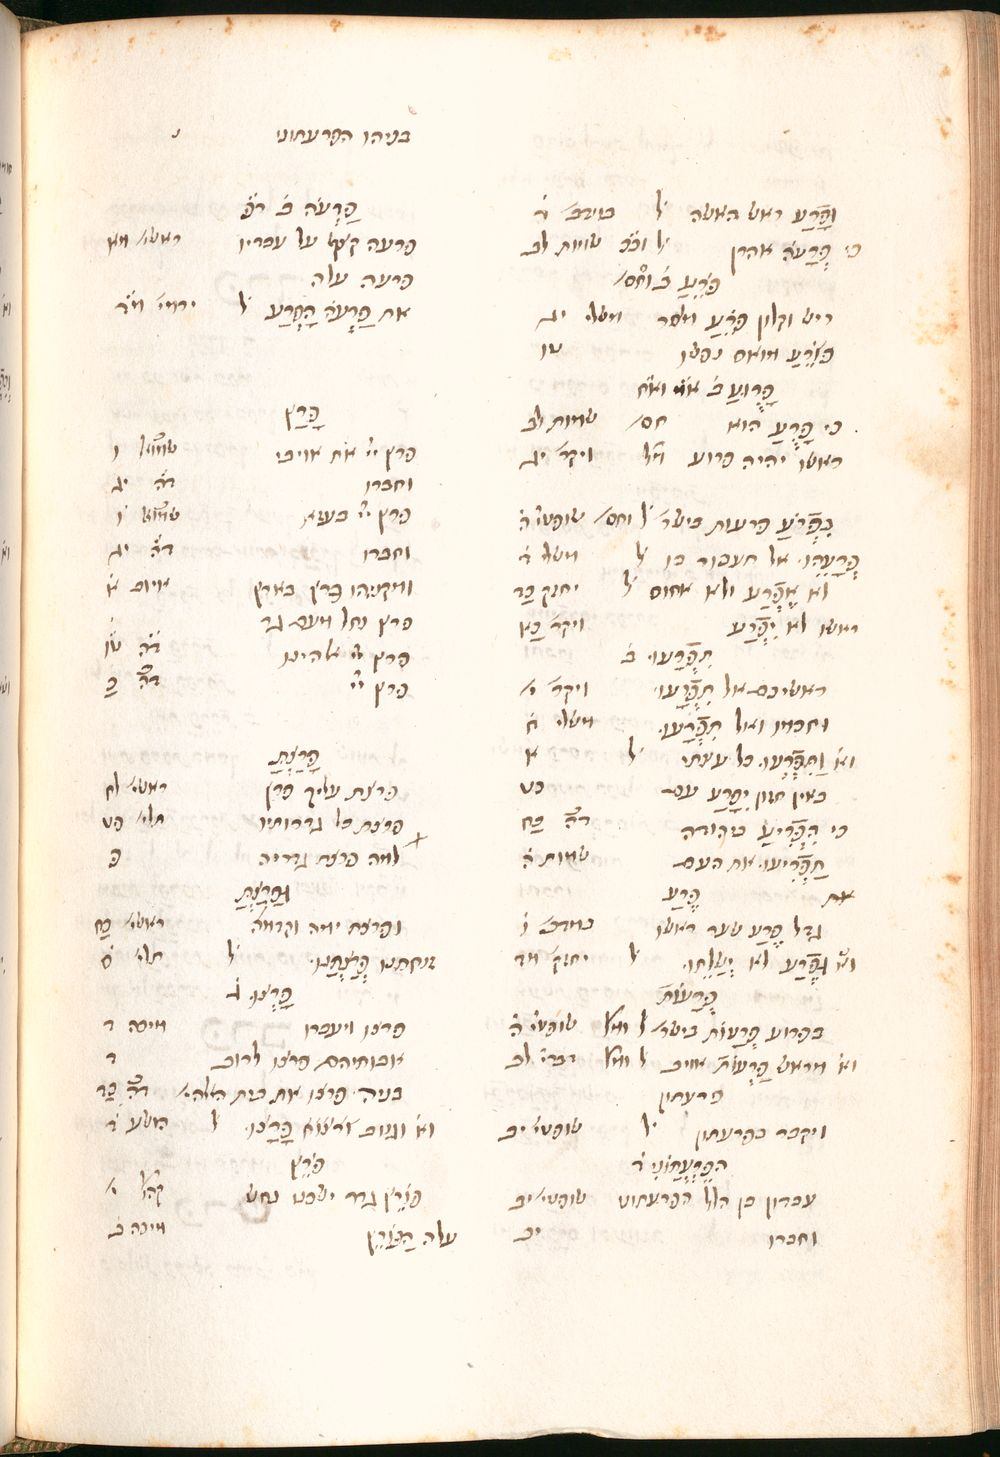 וּפָרַע ראש האשה ל במדב׳ ה
כי פְרָעֹה אהרן ל וכ׳ שמות לב
פֹרֵעַ ב וחס׳
ריש וקלון פּוֹרֵעַ מוסר משלי יג
פּוֹרֵעַ מואס נפשו טו
פָּרֻעַ ב
כי פָרֻעַ הוא חס׳ שמות לב
ראשו יהיה פרוע ומל ויקר׳ יג
בִּפְרֹעַ פרעות בישר׳ ל וחס׳ שופטי׳ ה
פְּרָעֵהוּ אל תעבור בו ל משלי ד
ולא אֶפְרַע ולא אחוס ל יחזק׳ כד
ראשו לא יִפְרָע ויקר׳ כא
תִפְרָעוּ ב
ראשיכם אל תִּפְרָעוּ ויקר׳ י
וחכמו ואל תִּפְרָעוּ משלי ח
וַתִּפְרְעוּ כל עצתי ל א
באין חזון יִפָּרַע עם כט
כי הִפְרִיעַ ביהודה ד״ה כח
תַּפְרִיעוּ את העם שמות ה
פֶּרַע
גדל פֶּרַע שער ראשו במדב׳ ו
וּפֶרַע לא יְשַׁלֵּחוּ ל יחזק׳ מד
פְּרָעוֹת
בפרוע פְּרָעוֹת בישר׳ ל ומל שופטי׳ ה
מראש פַּרְעוֹת אויב ל ומל דברי׳ לב
פרעתון
ויקבר בפרעתון ל שופטי׳ יב
הַפִּרְעָתוֹנִי ד
עבדון בן הלל הפרעתוני שופטי׳ יב
וחברו יב
בניהו הפרעתוני
פַּרְעֹה ב
פרעה קצף על עבדיו ראשי׳ מא
פרעה עלה
את פַּרְעֹה חָפְרַע ל ירמי׳ מד
פָּרַץ
פרץ יי את אויבי שמואל ו
וחברו ד״ה יג
פרץ יי בעזא שמואל ו
וחברו ד״ה יג
ומקניהו פרץ בארץ איוב א
פרץ נחל מעם גר
פרץ יי אלהינו ד״ה טו
פרץ יי ד״ה כ
פָּרַצְתָּ
פרצת עליך פרץ ראשי׳ לח
פרצת כל גדרותיו תלי׳ פט
למה פרצת גדריה פ
וּפָרַצְתָּ
ופרצת ימה וקדמה ראשי׳ כח
זנחתנו פְּרַצְתָּנוּ ל תלי׳ ס
פָּרְצוּ ג
פרצו ויעברו מיכה ב
אבותיהם פרצו לרוב ד
בניה פרצו את בית האלהי׳ ד״ה כד
ונגוב וְרָצֹחַ פָּרָצוּ ל הושע ד
פֹּרֵץ
פּוֹרֵץ גדר ישכנו נחש קהל׳ י
עלה הַפּוֹרֵץ מיכה ב